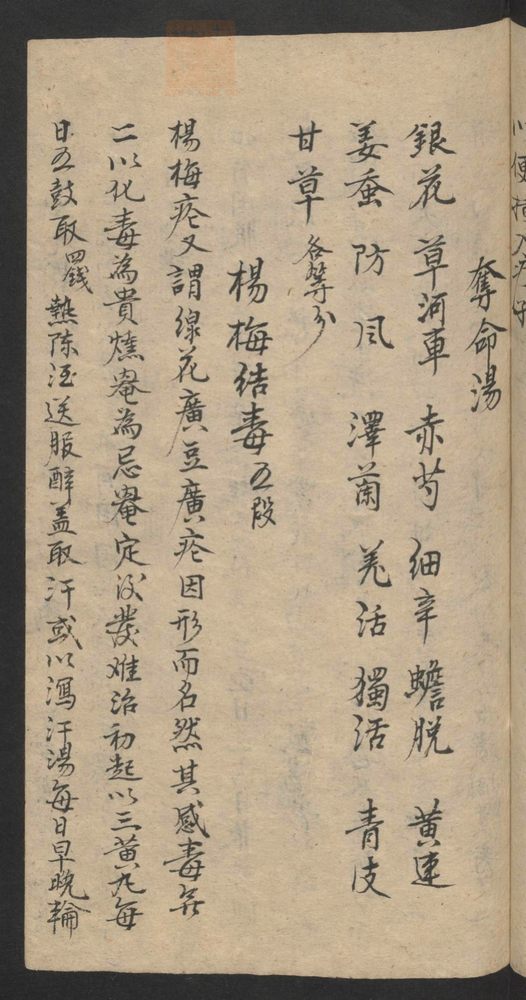 奪命湯
銀花 草河車 赤芍 細辛 蟾脱 黄連
姜蚕 防风 澤蘭 羌活 獨活 青皮
甘草 各等分
楊梅结毒 五段
楊梅疮又謂綿花廣豆廣疮因形而名然其感毒無
二以化毒為貴燻罨為忌罨定後發难治初起以三黄丸每
日五鼓取四錢热陈酒送服醉盖取汗或以瀉汗湯每日早晚輪